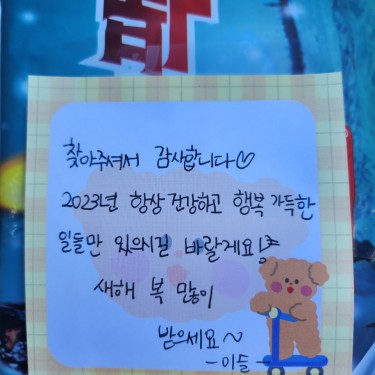 찾아주셔서 감사합니다♡
2023년 항상 건강하고 행복 가득한
일들만 있으시길 바랄게요!
새해 복 많이
받으세요~
-이들-